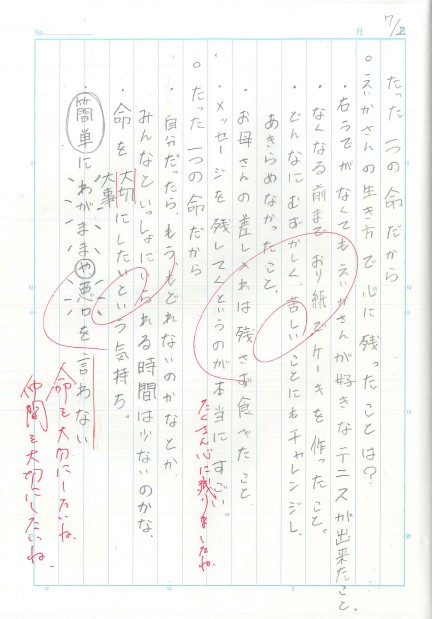 No.
月
7/2
たった一つの命だから
○えいかさんの生き方で心に残ったことは?
・右うでがなくてもえいかさんが好きなテニスが出来たこと。
・なくなる前までおり紙でケーキを作ったこと。
・どんなにむずかしく、苦しいことにもチャレンジし、
あきらめなかったこと、
・お母さんの差し入れは残さず食べたこと
・メッセージを残してくというのが本当にすごい。
たくさん心に残りましたね。
○たった一つの命だから
・自分だったら、もうもどれないのかなとか
みんなといっしょにいられる時間は少ないのかな、
・命を大切にしたいという気持ち。
大事
・簡単にわがままや悪口を言わない
命を大切にしたいね。
仲間を大切にしたいね。